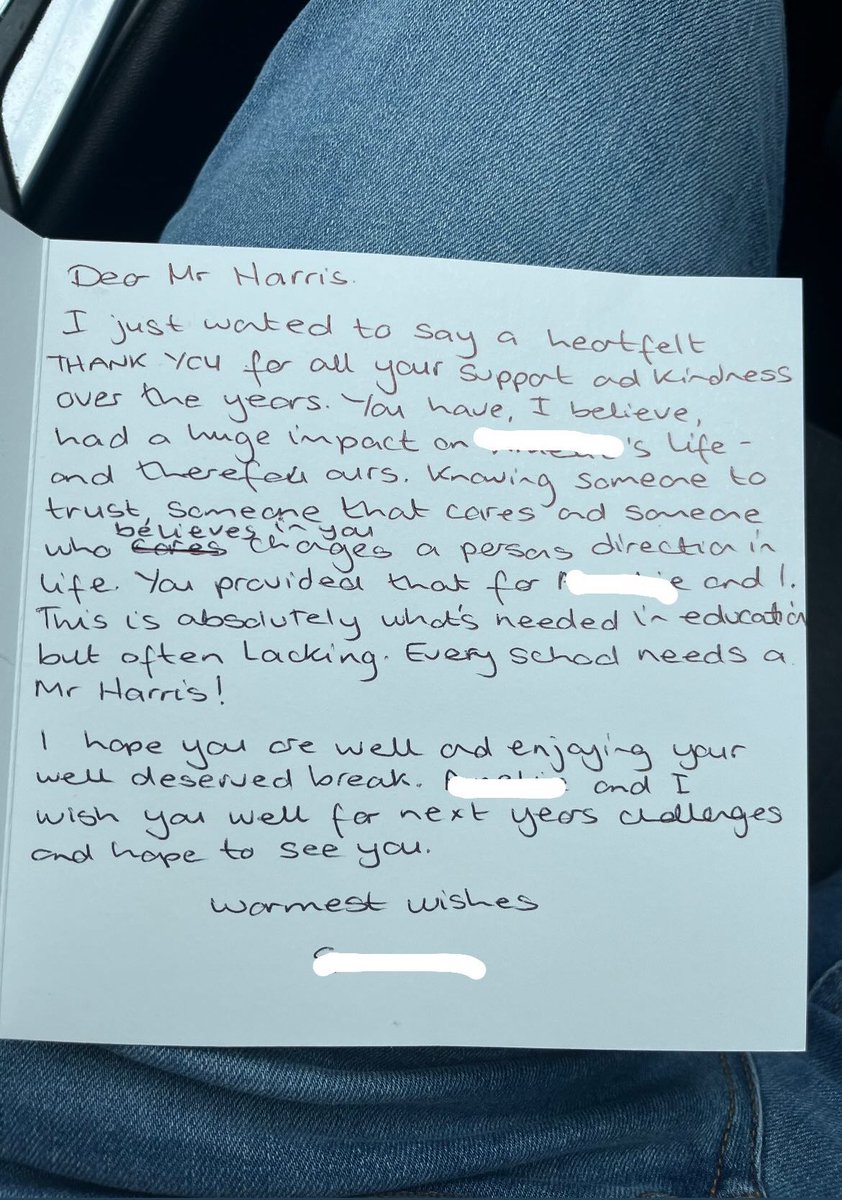 Dear Mr Harris.
I just wanted to say a heartfelt
THANK YOU for all your support and kindness
over the years. You have, I believe,
had a huge impact on 's life -
and therefore ours. Knowing someone to
trust, someone that cares and someone
believes in you
who cares changes a persons direction in
life. You provided that for and I.
This is absolutely what's needed in education
but often lacking. Every school needs a
Mr Harris!
I hope you are well and enjoying your
well deserved break. and I
wish you well for next years challenges
and hope to see you.
Warmest wishes